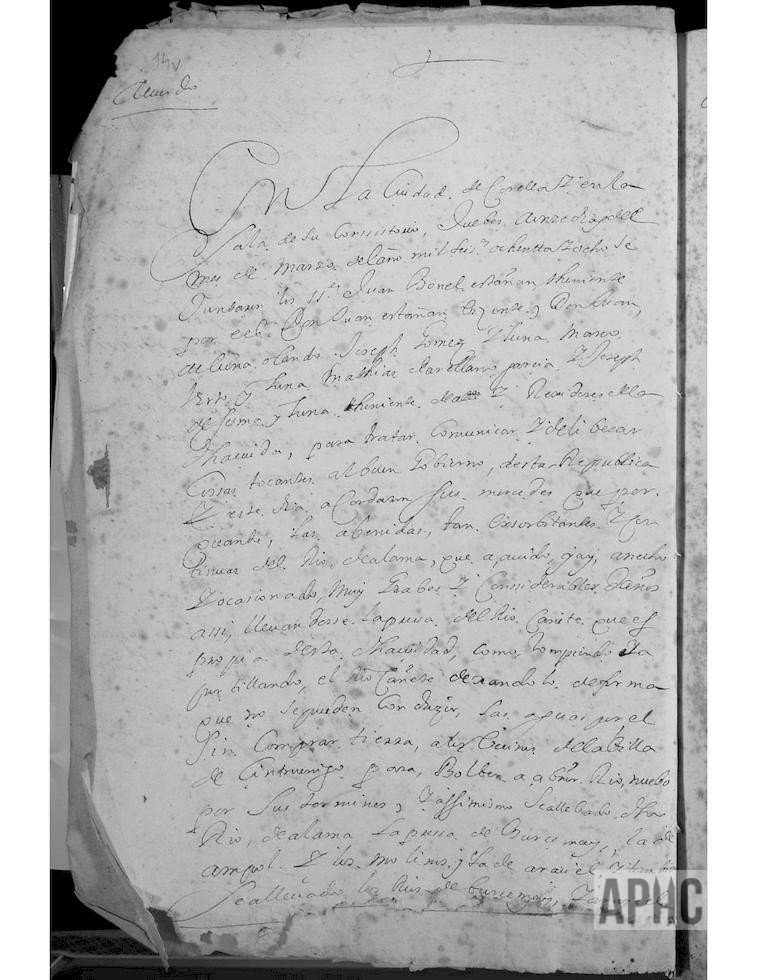 14v
Acuerdo
En La Ciudad de Corella Y en la
Sala de su Consistorio, Juebes, dia del
mes de Marzo del año mil seis.s ochentta Y ocho se
Juntaron los ss.res Juan Bonel estañan, theniente
por el Don Juan estañan, y Don Juan,
de luna, olando. Joseph Gomez Y luna Marco
Y luna Mathias de arellano garcia Y Joseph
de sesma y luna theniente de Y Rexidores della
dha ciudad, para tratar, Comunicar Y deliberar
Cossas tocantes al buen Gobierno, desta Republica
Y este dia acordaron sus mercedes que por
quanto, las abenidas, tan exsorbitantes Y con
tinuas del Rio, de alama, que a auido, y ay, an echo
Y ocasionado, Muy Grabes Y Considerables daños
assi, llevandosse la pressa del Rio Cañete que es
propia desta dha ciudad, como, Rompiendo Ya
portillando, el Rio Cañete dexandolo de forma
que no se pueden Conduzir, las aguas por el
Sin Comprar tierra, a los Vecinos de la Villa
de Cintruenigo para, Bolber a abrir Rio, nuebo
por sus terminos, Y assimismo se a llebado dho
Rio, de alama La pressa de Burcemay, la de
ampol. Y los molinos, y la de araciel, Y tambien
Se a lleuado, los Rios de burcemay, Y araciel
APHC